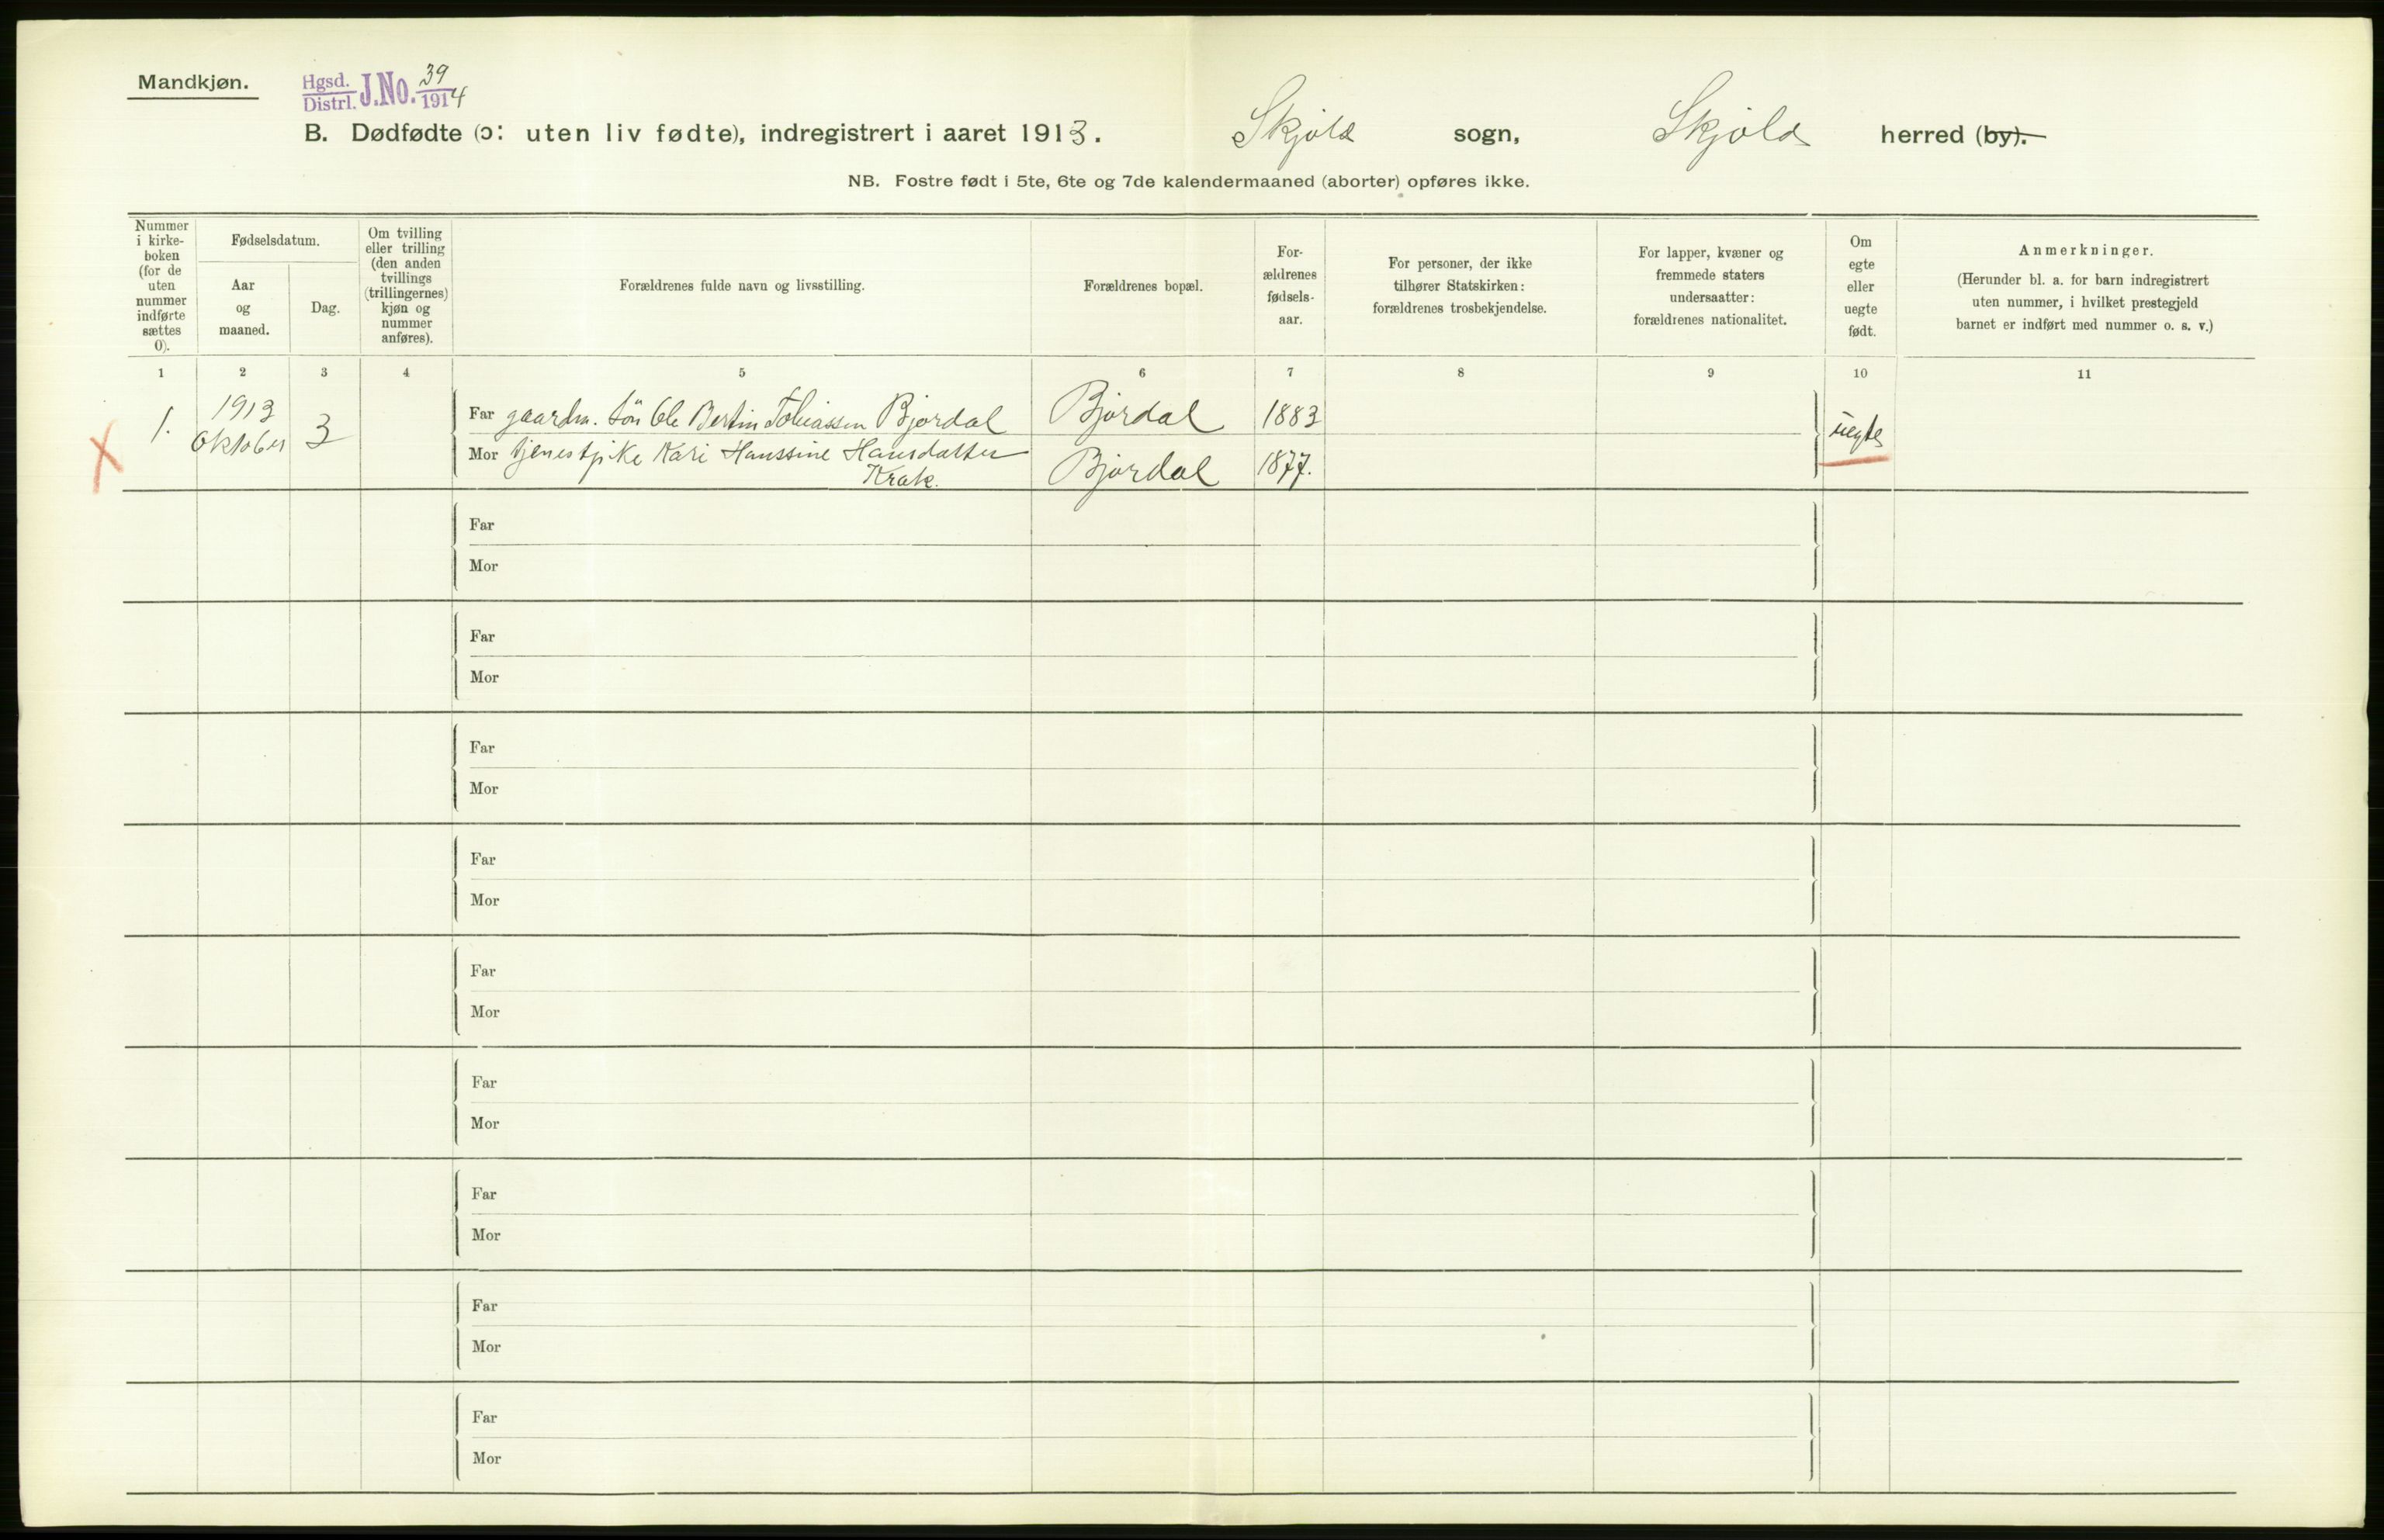 Mandkjøn.
Hgsd. Distrl. J.No. 39/1914
B. Dødfødte (ɔ: uten liv fødte), indregistrert i aaret 1913. Skjold sogn, Skjold herred (by).
NB. Fostre født i 5te, 6te og 7de kalendermaaned (aborter) opføres ikke.
Nummer
i kirke-
boken
(for de
uten
nummer
indførte
sættes
0).
Fødselsdatum.
Aar
og
maaned.
Dag.
Om tvilling
eller trilling
(den anden
tvillings
(trillingernes)
kjøn og
nummer
anføres).
Forældrenes fulde navn og livsstilling.
Forældrenes bopæl.
For-
ældrenes
fødsels-
aar.
For personer, der ikke
tilhører Statskirken:
forældrenes trosbekjendelse.
For lapper, kvæner og
fremmede staters
undersaatter:
forældrenes nationalitet.
Om
egte
eller
uegte
født.
Anmerkninger.
(Herunder bl. a. for barn indregistrert
uten nummer, i hvilket prestegjeld
barnet er indført med nummer o. s. v.)
1 2 3 4 5 6 7 8 9 10 11
1.
1913
Oktober
3
Far gaardm. søn Ole Bertin Tobiassen Bjordal
Bjordal
1883
Mor tjenestpike Kari Hanssine Hansdatter
Krak.
Bjordal
1877.
uegte
Far
Mor
Far
Mor
Far
Mor
Far
Mor
Far
Mor
Far
Mor
Far
Mor
Far
Mor
Far
Mor